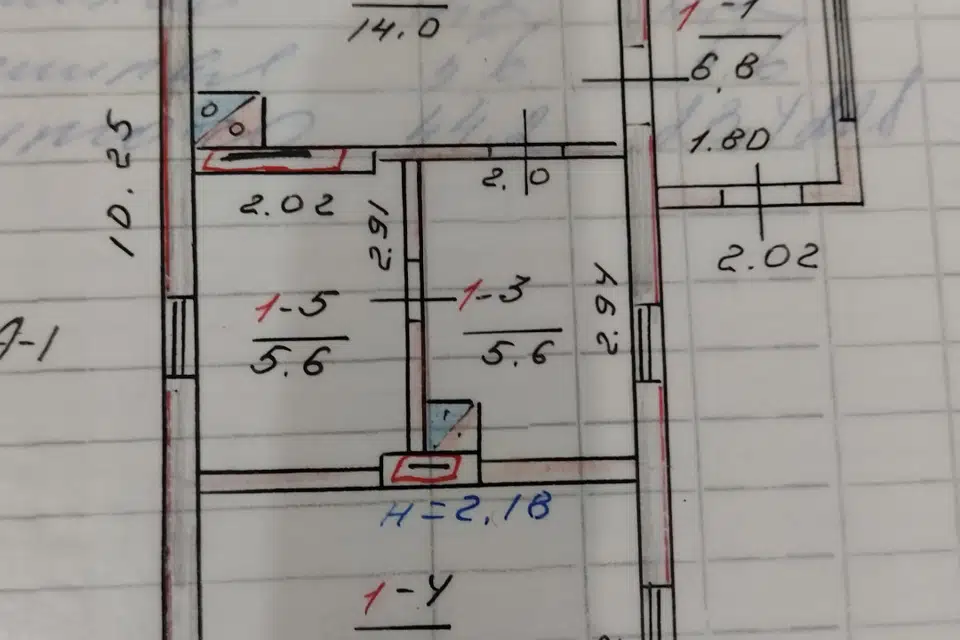 14.0
1-1
6.8
1.80
10.25
2.02
2.91
2.0
2.02
1-5
5.6
1-3
5.6
2.94
H=2.18
1-4